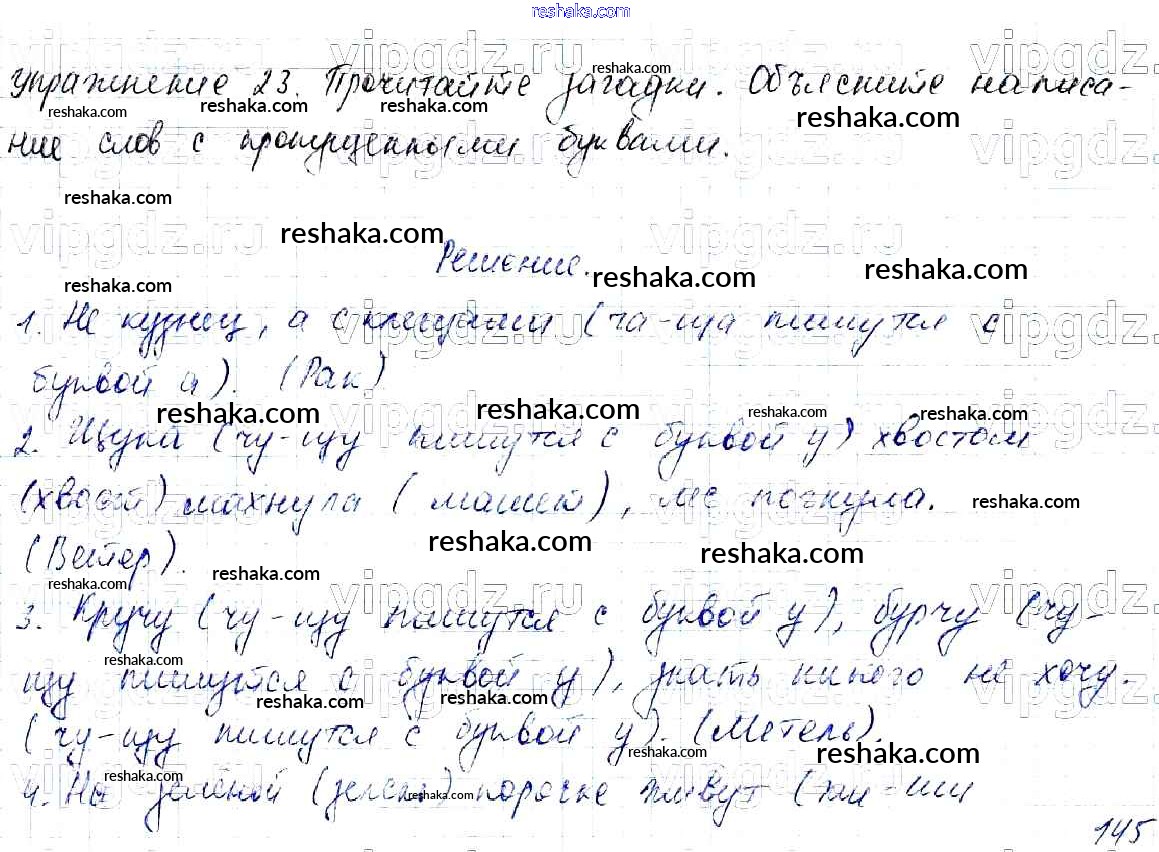 reshaka.com
Упражнение 23. Прочитайте загадки. Объясните написа-
ние слов с пропущенными буквами.
Решение.
1. Не кузнец, а с клещами (ча-ща пишутся с
буквой а). (Рак)
2. Щука (чу-щу пишутся с буквой у) хвостом
(хвост) махнула (машет), лес погнула.
(Ветер).
3. Кручу (чу-щу пишутся с буквой у), бурчу (чу-
щу пишутся с буквой у), знать никого не хочу.
(чу-щу пишутся с буквой у). (Метель).
4. На зелёной порочке живут (жи-ши
145